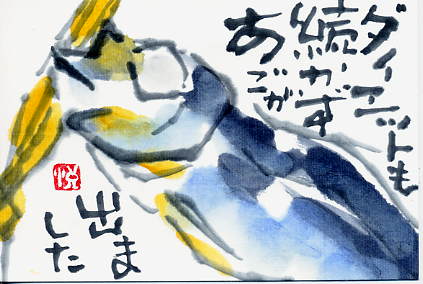 ダイエットも
続かず
あごが
出ま
した